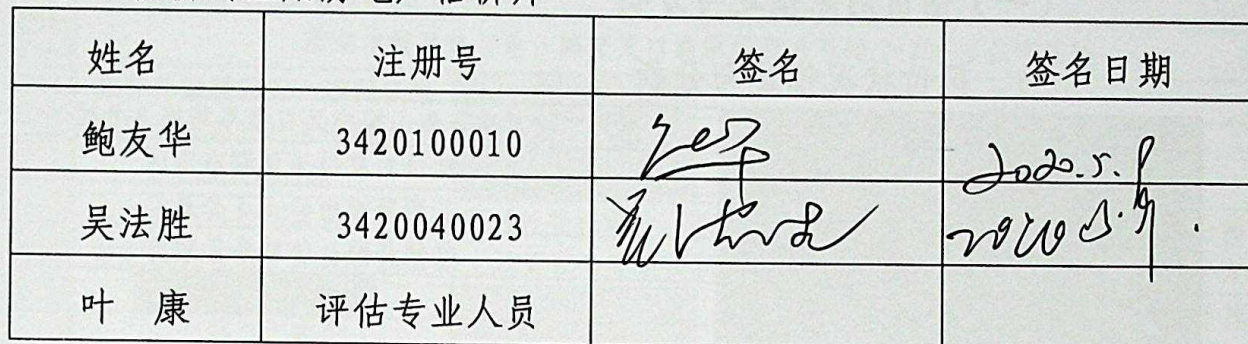 姓名 注册号 签名 签名日期
鲍友华 3420100010 2020.5.9
吴法胜 3420040023 2020.5.9.
叶 康 评估专业人员